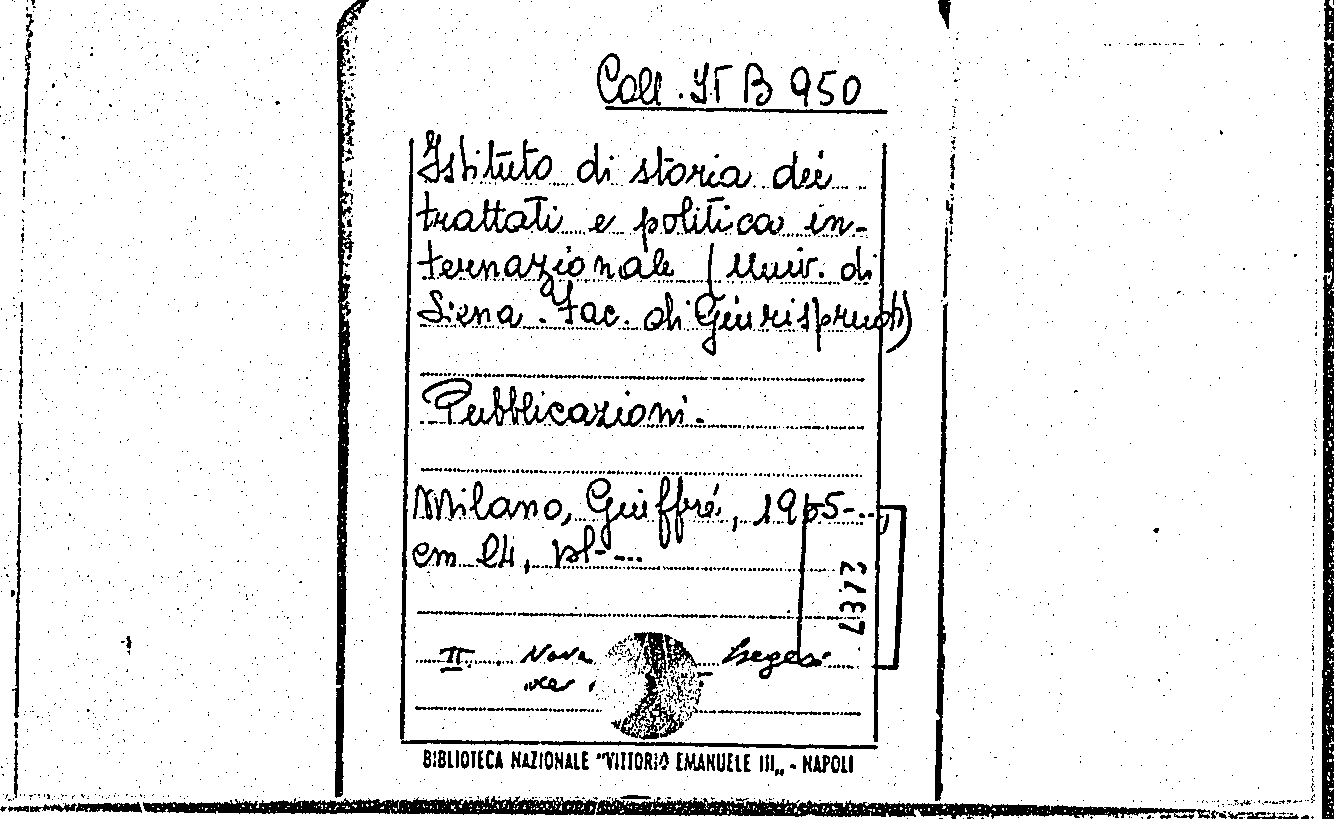 Coll. IT B 950
Istituto di storia dei
trattati e politica in-
ternazionale (Univ. di
Siena. Fac. di Giurisprud.)
Pubblicazioni.
Milano, Giuffré, 1965-...,
cm 24, pl-...
7372
II. Nova
BIBLIOTECA NAZIONALE "VITTORIO EMANUELE III„ - NAPOLI